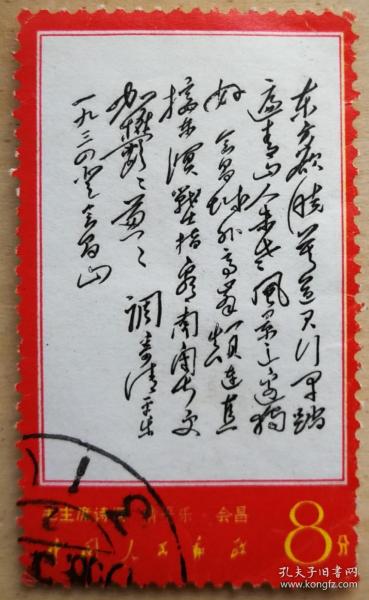 东方欲晓莫道君行早踏
遍青山人未老风景这边独
好 会昌城外高峰颠连直
接东溟战士指看南粤更
加鬱〻葱〻 调寄清平乐
一九三四登会昌山
毛主席诗词 清平乐 会昌
中国人民邮政
8分
孔夫子旧书网
www.kongfz.com